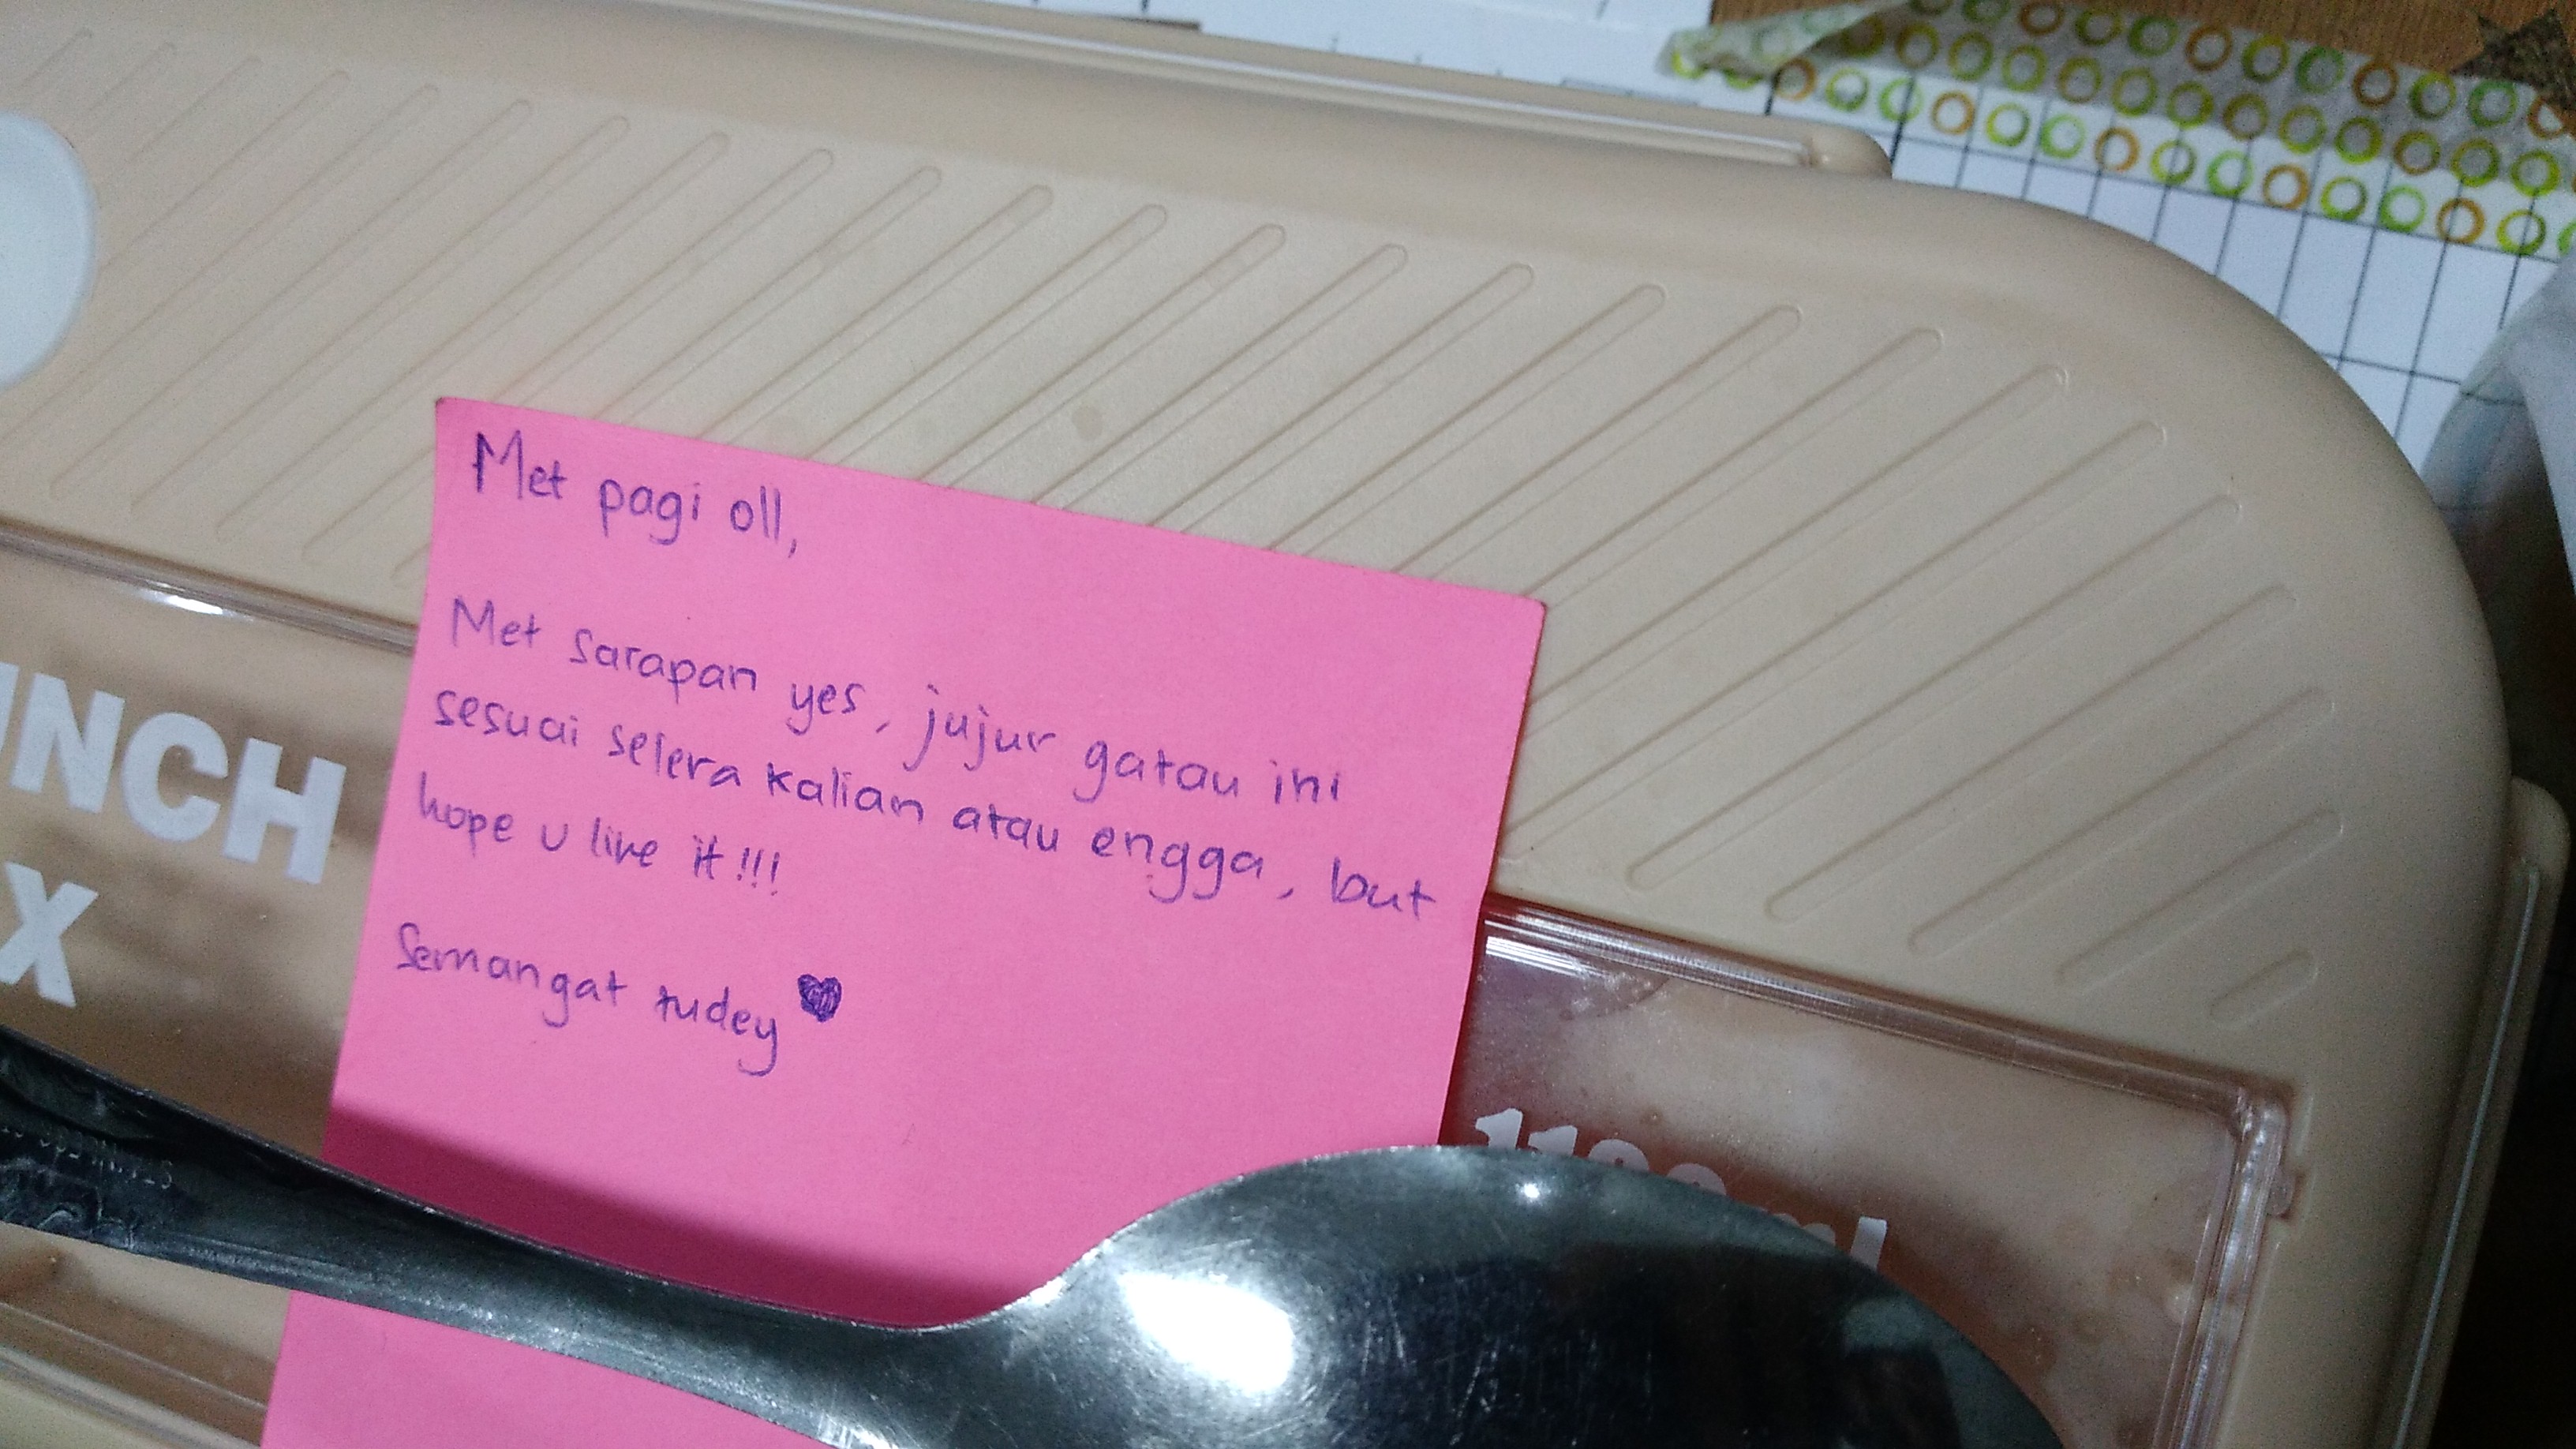 Met pagi oll,
Met sarapan yes, jujur gatau ini
sesuai selera kalian atau engga, but
hope u like it!!!
Semangat tudey ♥